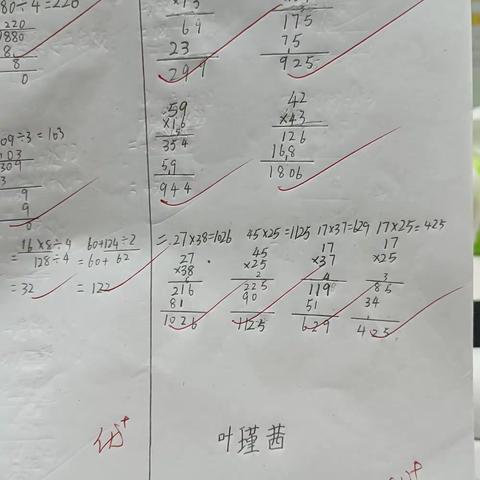 80÷4=220
220
880
8
8
0
09÷3=103
103
309
3
9
9
0
16×8÷4
=128÷4
=32
60+124÷2
=60+62
=122
69
23
299
175
75
925
59
×16
354
59
944
42
×43
126
168
1806
二、27×38=1026 45×25=1125 17×37=629 17×25=425
27
×38
216
81
1026
45
×25
225
90
1125
17
×37
119
51
629
17
×25
85
34
425
优+
叶瑾茜